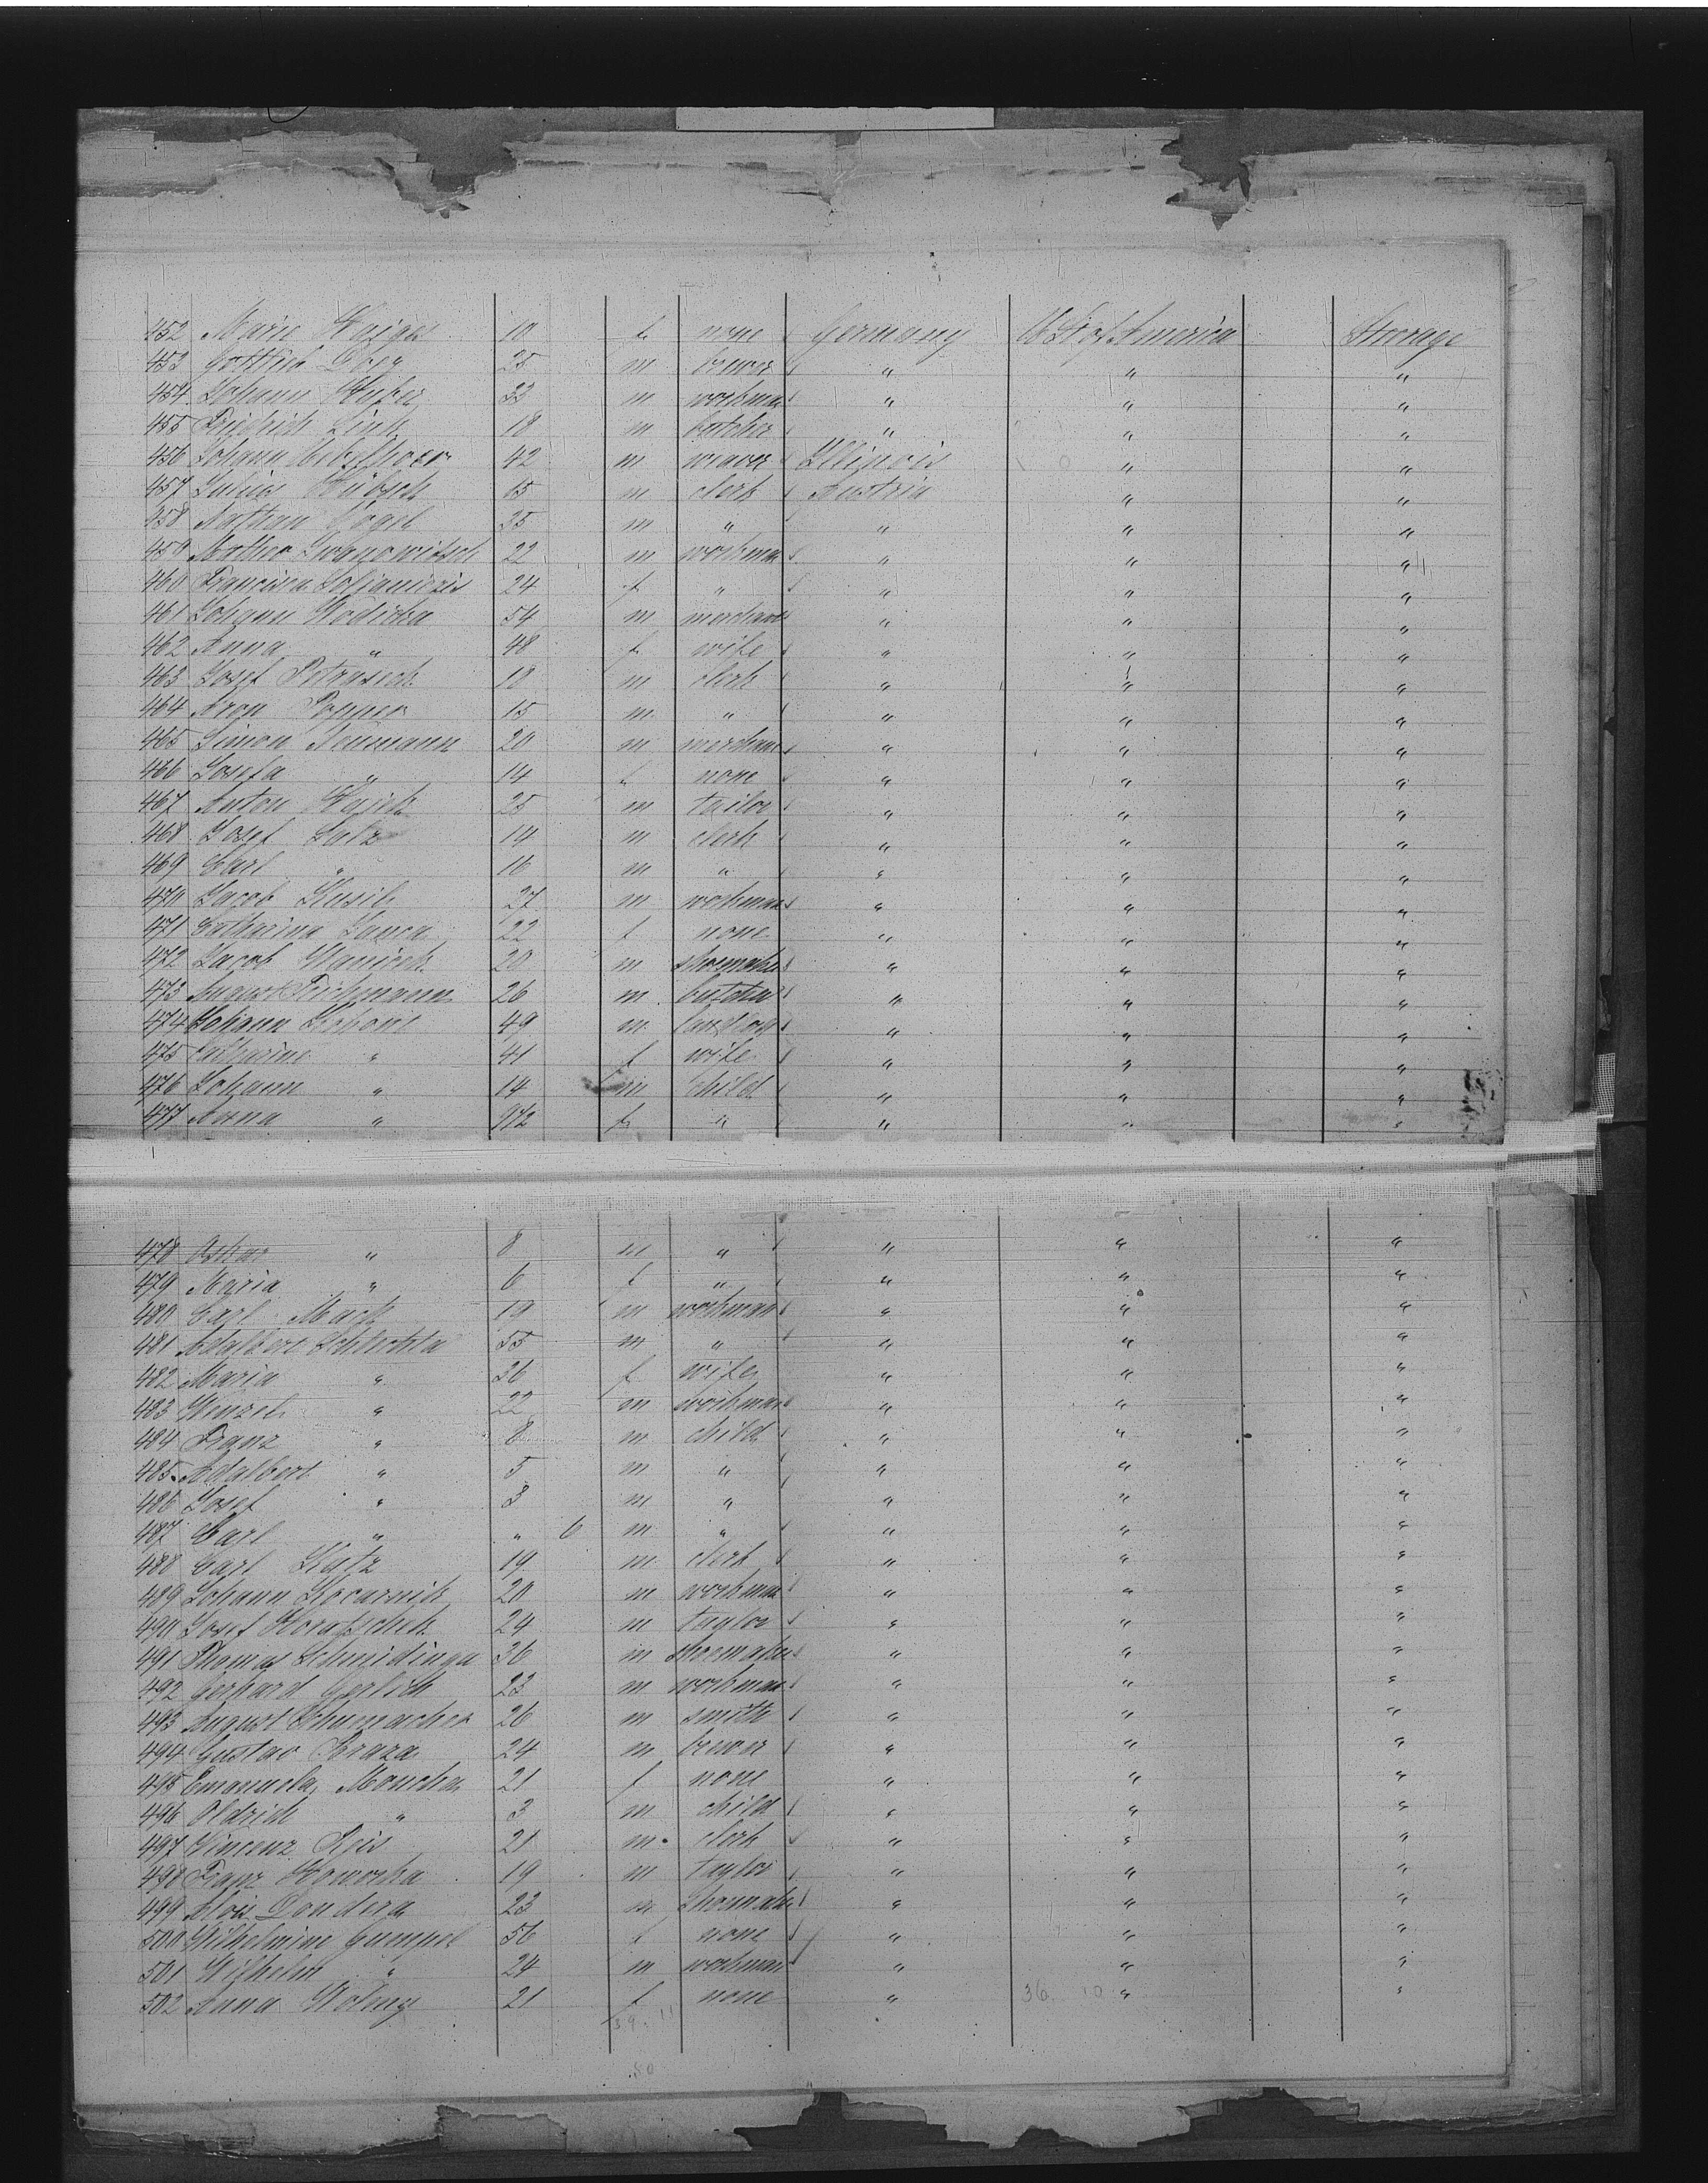 452 Marie 18 f none Germany U St of America Steerage
453 Gottlieb 25 m brewer " " "
454 Johann 33 m workman " " "
455 Friedrich Link 18 m butcher " " "
456 Johann 42 m weaver Illinois " "
457 Julius Hübsch 15 m clerk Austria " "
458 Nathan Vogel 25 m " " " "
459 22 m workman " " "
460 24 f " " " "
461 Johann Wodicka 54 m merchant " " "
462 Anna " 48 f wife " " "
463 Josef Petrasek 18 m clerk " " "
464 Aron Popper 15 m " " " "
465 Simon Neumann 20 m merchant " " "
466 Josefa " 14 f none " " "
467 Anton Hajek 25 m tailor " " "
468 Josef 14 m clerk " " "
469 Carl " 16 m " " " "
470 Jacob 27 m workman " " "
471 Catharina 22 f none " " "
472 Jacob Wanicek 20 m shoemaker " " "
473 August 26 m butcher " " "
474 Johann 49 m " " "
475 Catharine " 41 f wife " " "
476 Johann " 14 m child " " "
477 Anna " 9 1/2 f " " " "
478 Oskar " 8 m " " " "
479 Maria " 6 f " " " "
480 Carl Mach 19 m workman " " "
481 Adalbert 55 m " " " "
482 Maria " 36 f wife " " "
483 Wenzel " 22 m workman " " "
484 Franz " 8 m child " " "
485 Adalbert " 5 m " " " "
486 Josef " 3 m " " " "
487 Carl " " 6 m " " " "
488 Carl Katz 19 m clerk " " "
489 Johann Kocarnik 20 m workman " " "
490 Josef 24 m taylor " " "
491 Thomas Schmidinga 36 m shoemaker " " "
492 Gerhard Gerlich 23 m workman " " "
493 August Schumacher 26 m smith " " "
494 Gustav 24 m brewer " " "
495 Emanuela Moucha 21 f none " " "
496 Oldrich " 3 m child " " "
497 Vincenz 21 m clerk " " "
498 Franz Howorka 19 m taylor " " "
499 Alois Dondera 23 m shoemaker " " "
500 Wilhelmine Gumpel 56 f none " " "
501 Wilhelm " 24 m workman " " "
502 Anna 21 f none " 36. 10 " "
39. 11
50